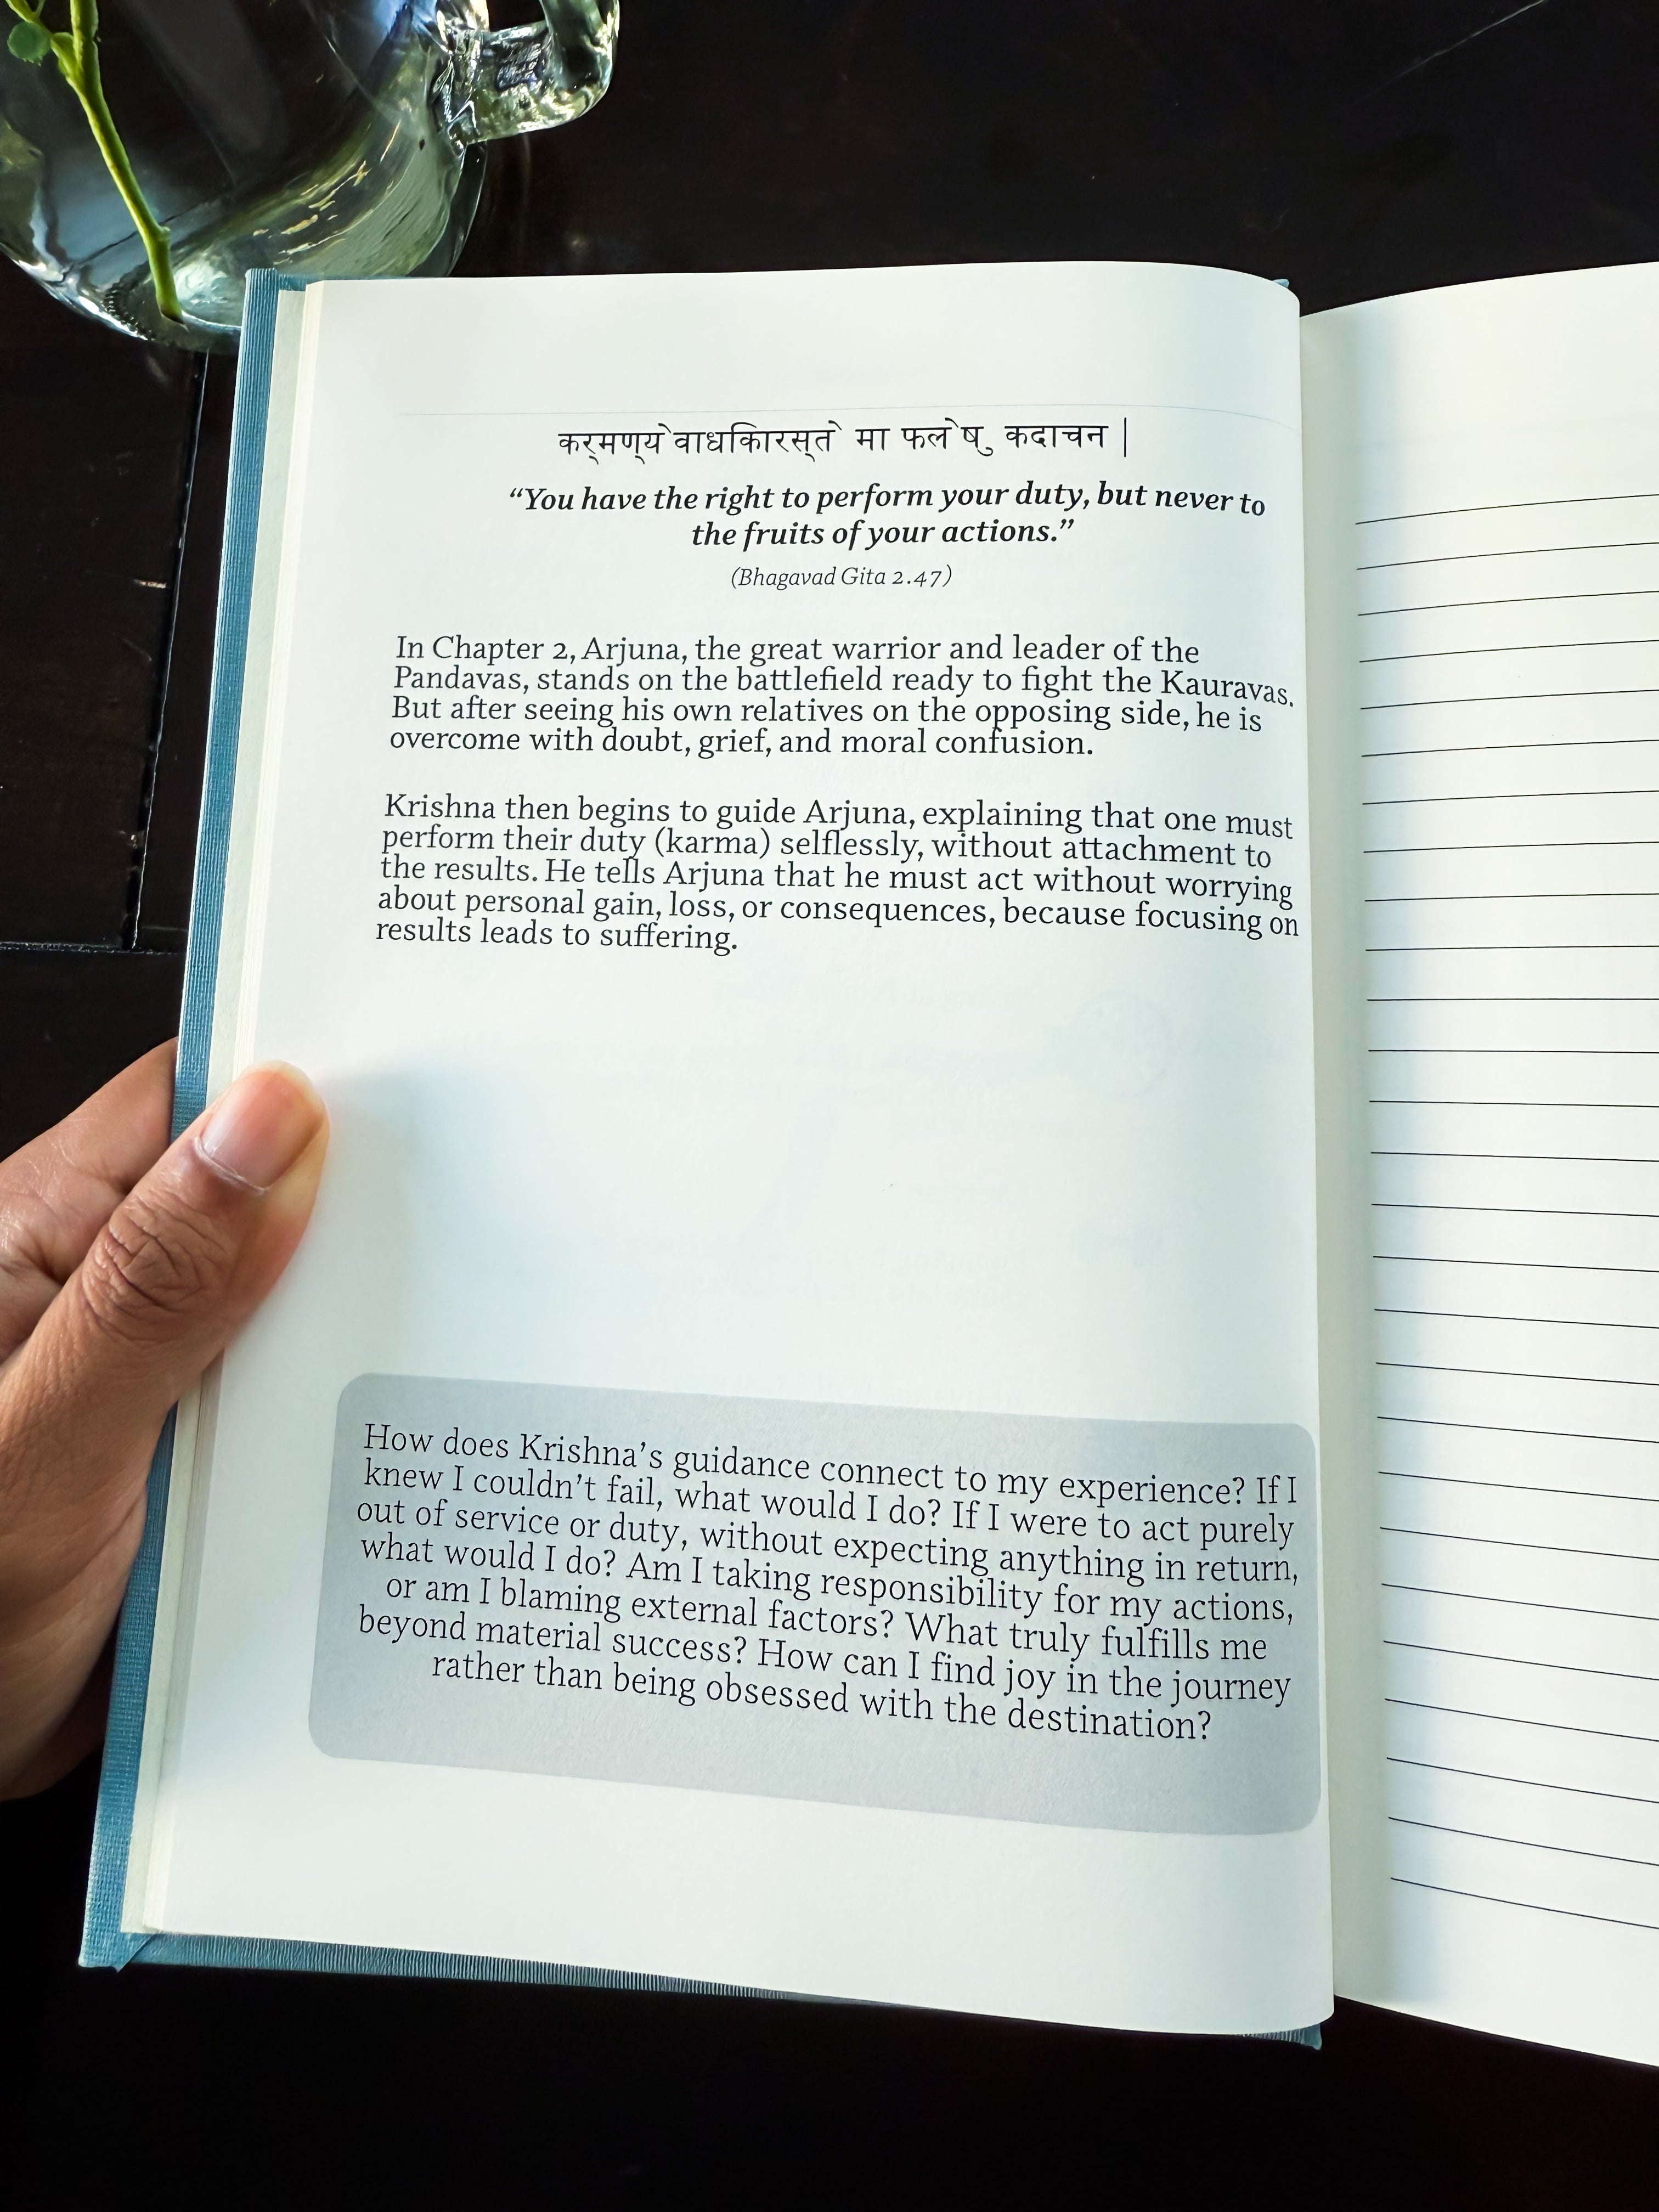 कर्मण्येवाधिकारस्ते मा फलेषु कदाचन |
“You have the right to perform your duty, but never to
the fruits of your actions.”
(Bhagavad Gita 2.47)
In Chapter 2, Arjuna, the great warrior and leader of the
Pandavas, stands on the battlefield ready to fight the Kauravas.
But after seeing his own relatives on the opposing side, he is
overcome with doubt, grief, and moral confusion.
Krishna then begins to guide Arjuna, explaining that one must
perform their duty (karma) selflessly, without attachment to
the results. He tells Arjuna that he must act without worrying
about personal gain, loss, or consequences, because focusing on
results leads to suffering.
How does Krishna’s guidance connect to my experience? If I
knew I couldn’t fail, what would I do? If I were to act purely
out of service or duty, without expecting anything in return,
what would I do? Am I taking responsibility for my actions,
or am I blaming external factors? What truly fulfills me
beyond material success? How can I find joy in the journey
rather than being obsessed with the destination?